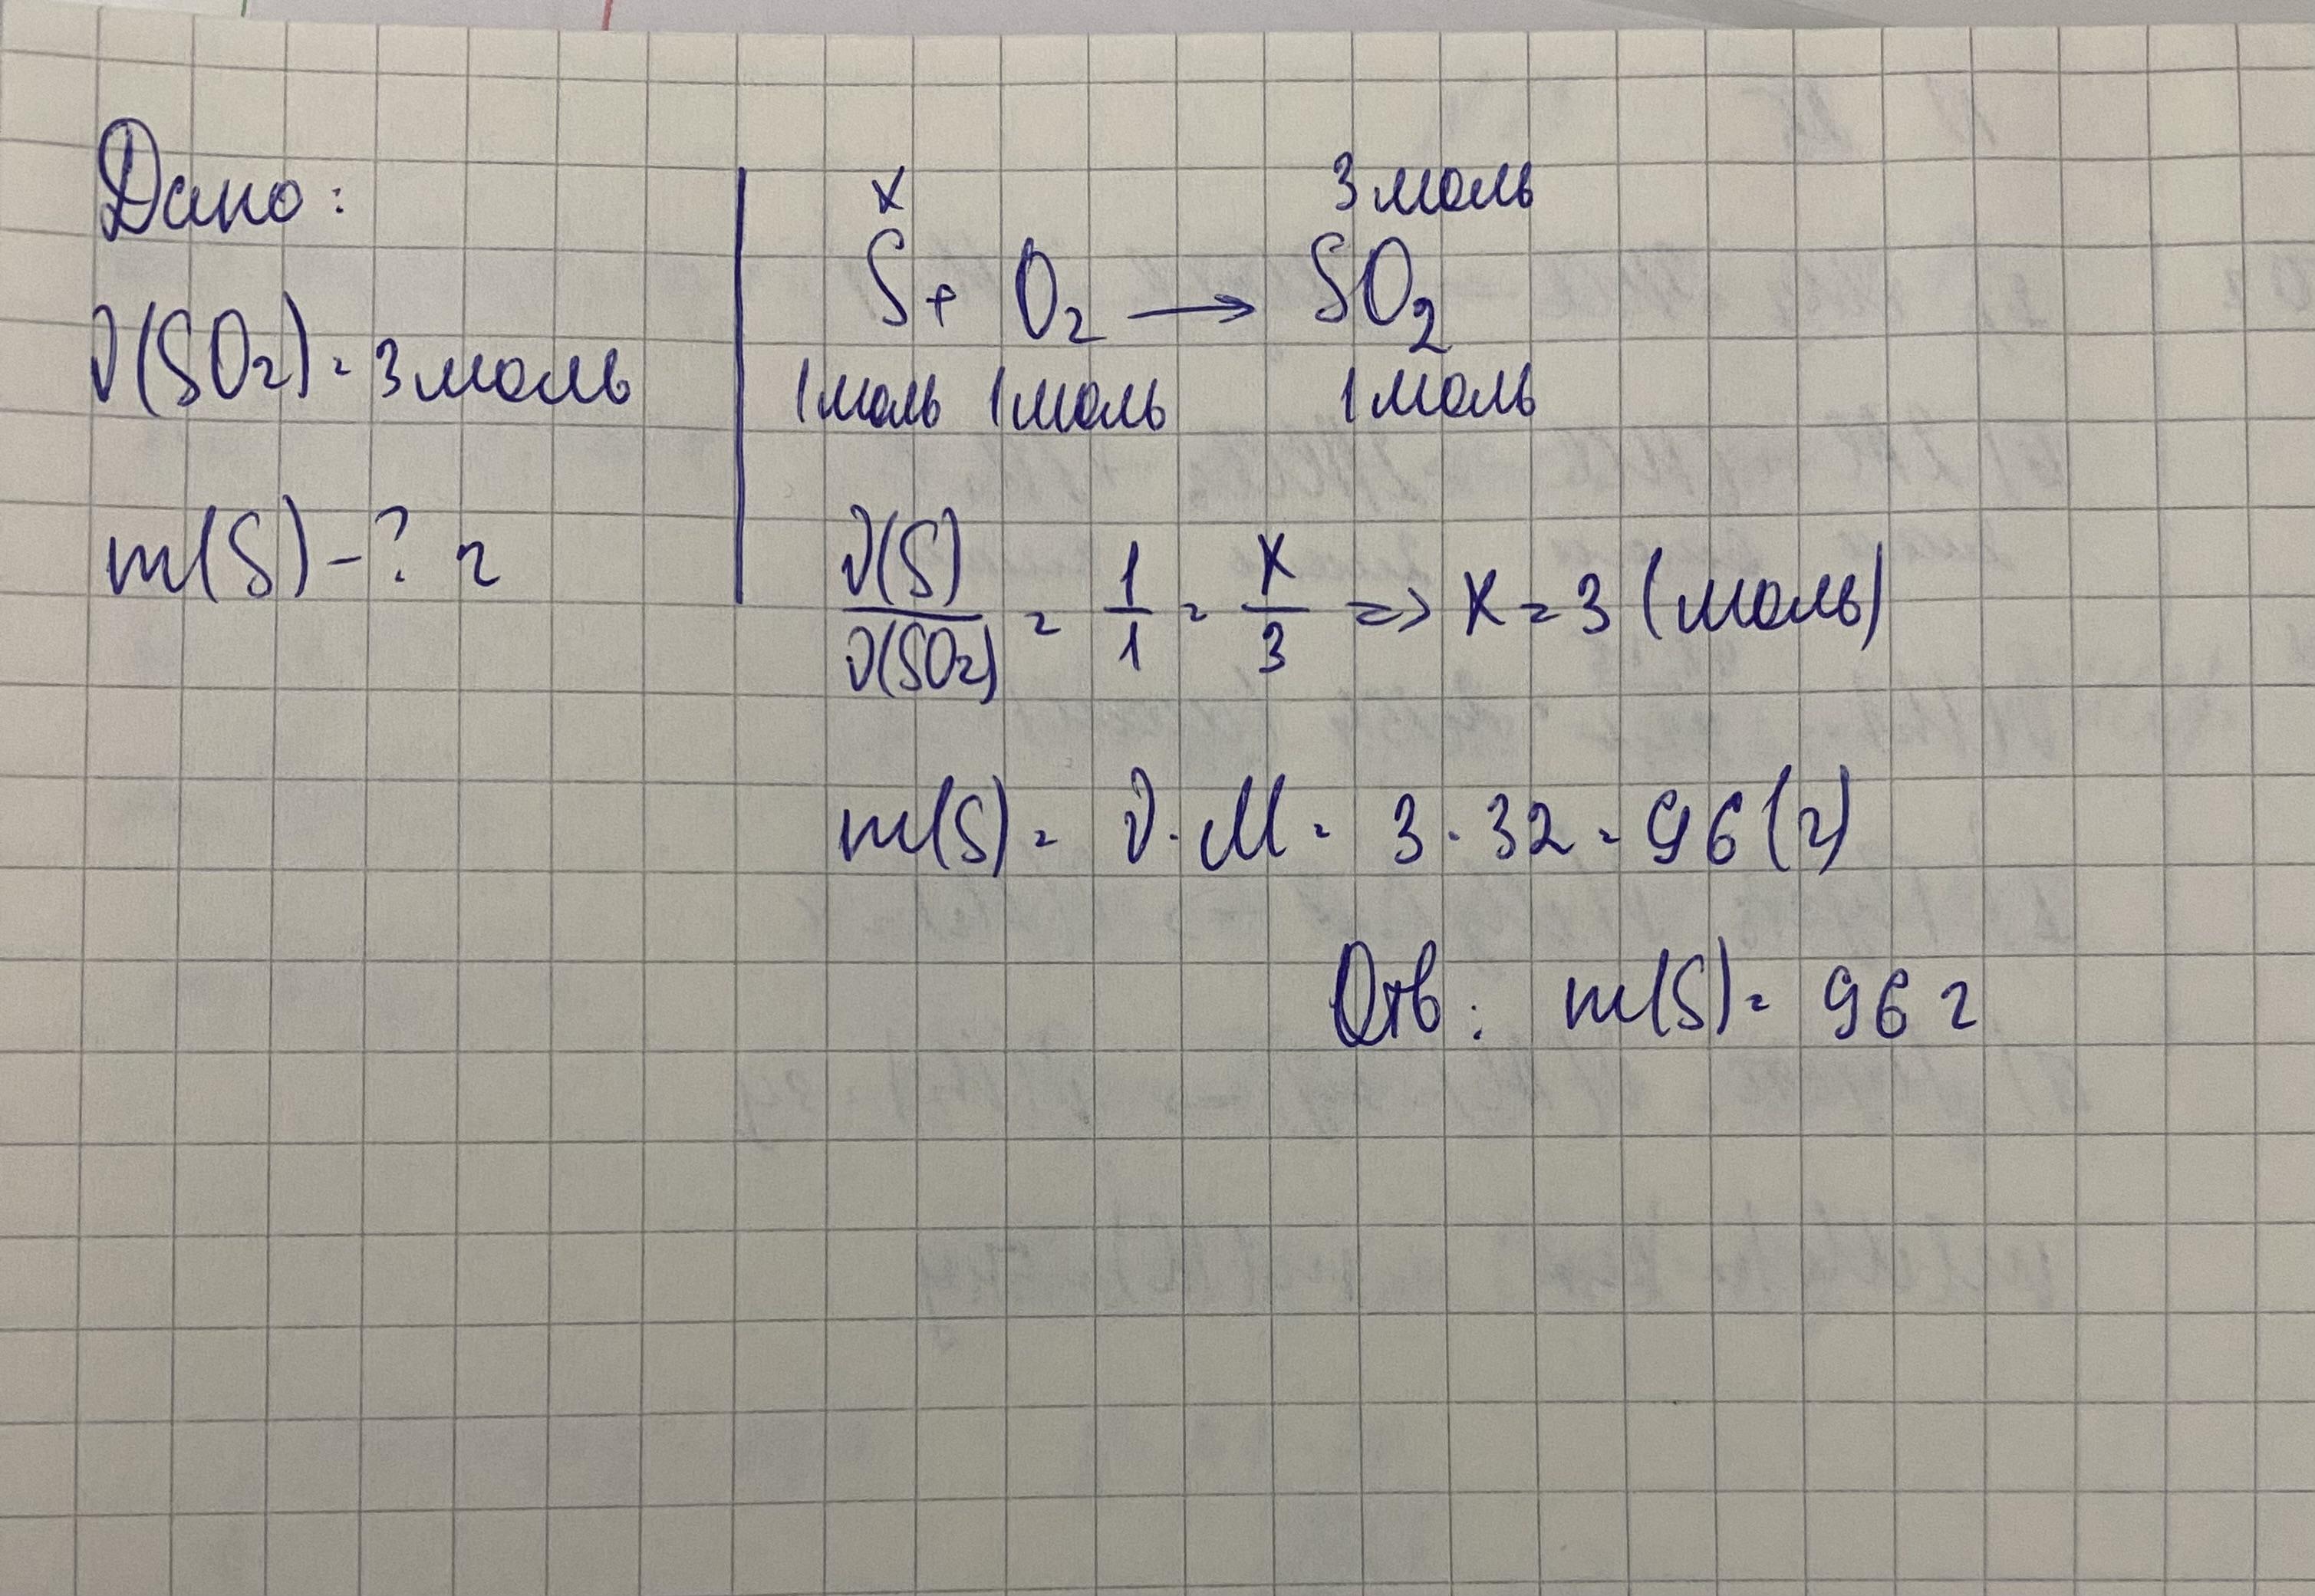 Дано:
ν(SO₂) = 3 моль
m(S) - ? г
x 3 моль
S + O₂ → SO₂
1 моль 1 моль 1 моль
ν(S)/ν(SO₂) = 1/1 = x/3 => x = 3 (моль)
m(S) = ν · M = 3 · 32 = 96 (г)
Отв: m(S) = 96 г